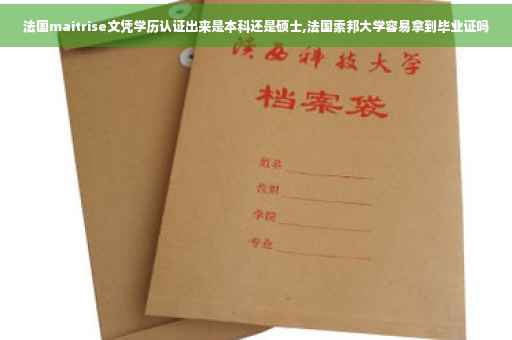 法国maitrise文凭学历认证出来是本科还是硕士,法国索邦大学容易拿到毕业证吗
陕西科技大学
档案袋
姓名
性别
学院
专业